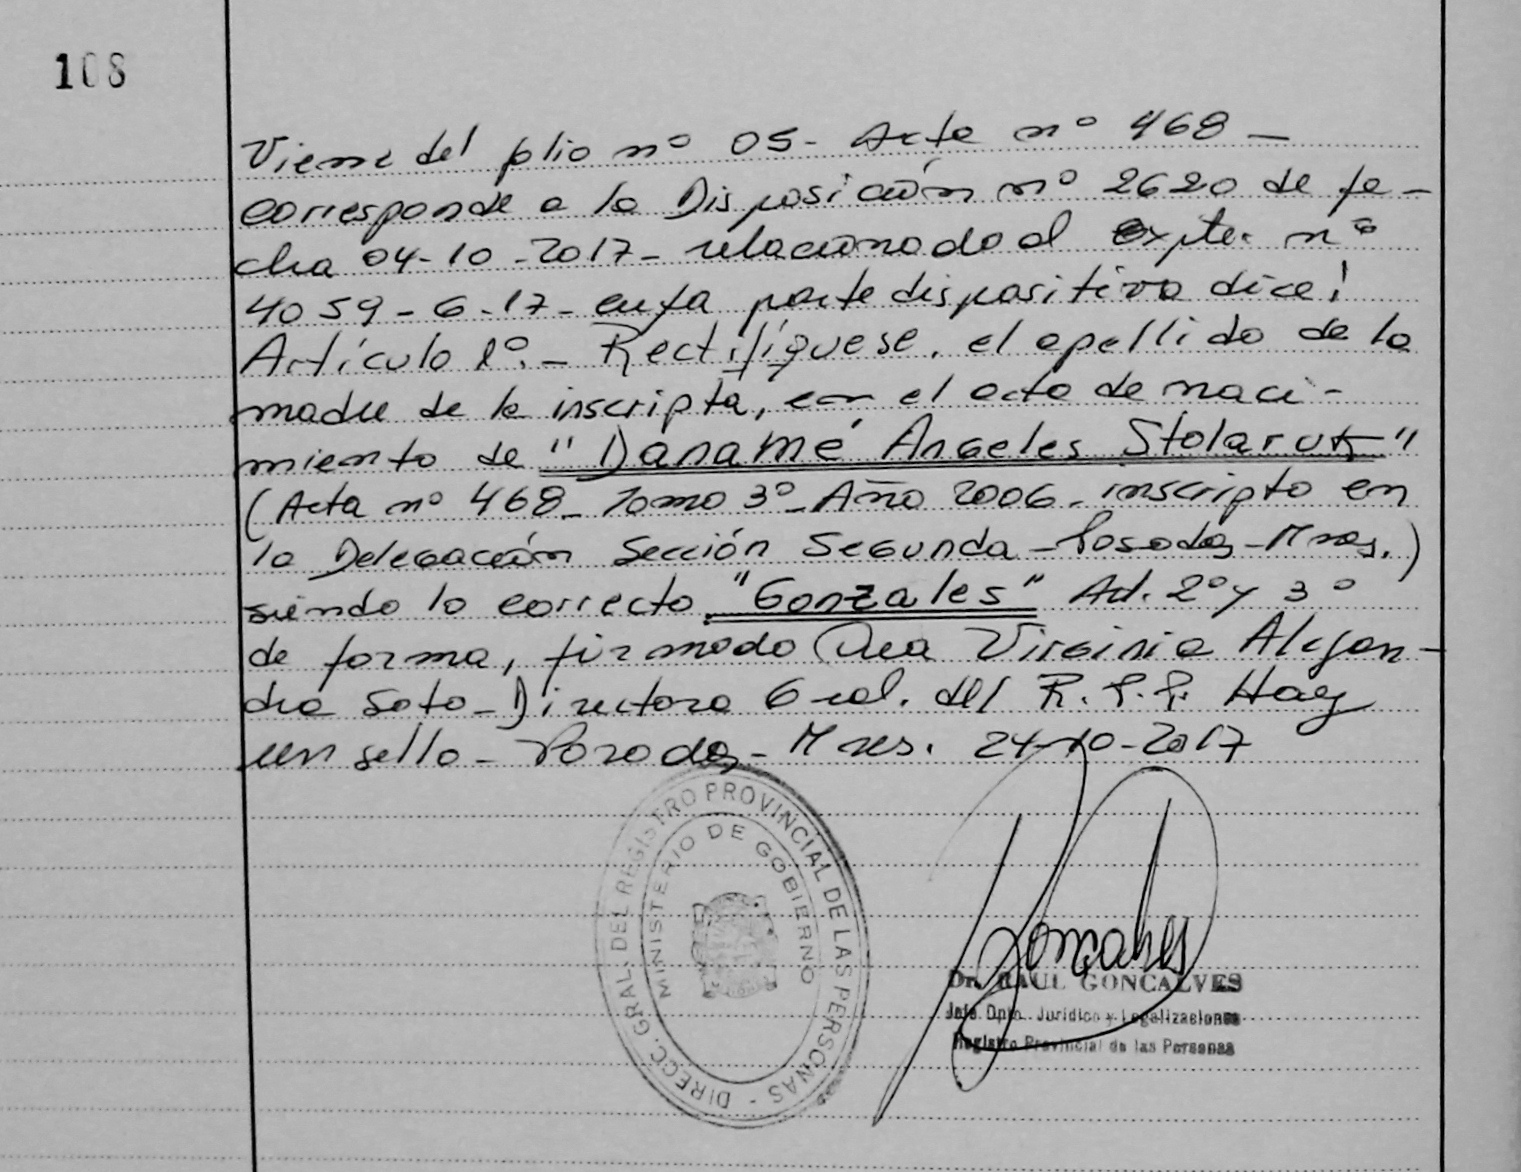 108
Viene del folio nº 05- Acta nº 468 —
corresponde a la Disposición nº 2620 de fe-
cha 04-10-2017- relacionado al Expte. nº
4059-G-17- cuya parte dispositiva dice:
Artículo 1º.- Rectifíquese, el apellido de la
madre de la inscripta, en el acta de naci-
miento de "Danamé Angeles Stolaruk"
(Acta nº 468- Tomo 3º- Año 2006- inscripto en
la Delegación Sección Segunda - Posadas - Mnes.)
siendo lo correcto "Gonzales" Art. 2º y 3º
de forma, firmado Virginia Alejan-
dra Soto- Directora Gral. del R.P.P. Hay
un sello - Posadas - Mnes. 24-10-2017
DIRECC. GRAL. DEL REGISTRO PROVINCIAL DE LAS PERSONAS -
MINISTERIO DE GOBIERNO
Goncalves
Dr. RAUL GONCALVES
Jefe Dpto. Jurídico y Legalizaciones
Registro Provincial de las Personas